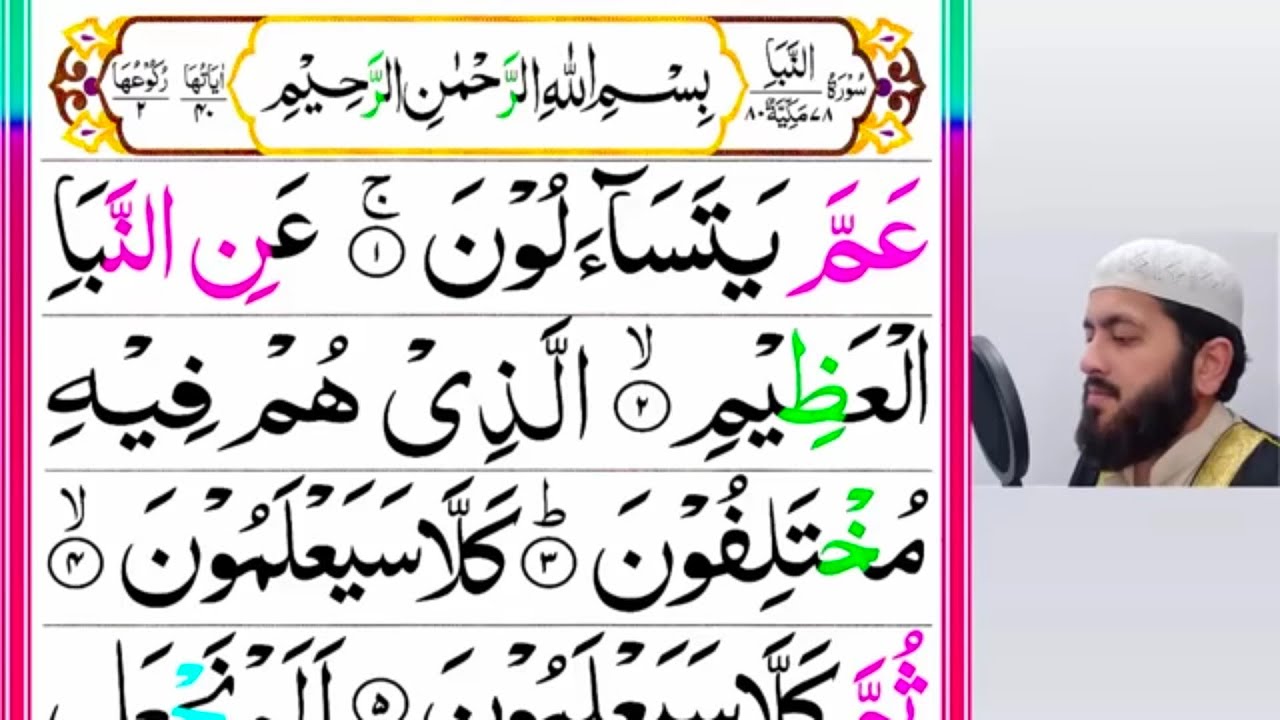 سُوْرَةُ النَّبَاِ ٧٨ مَكِّيَّةٌ ٨٠
بِسْمِ اللّٰهِ الرَّحْمٰنِ الرَّحِيْمِ
اٰيَاتُهَا ٤٠ رُكُوْعُهَا ٢
عَمَّ يَتَسَآءَلُوْنَ ۚ ١ عَنِ النَّبَاِ
الْعَظِيْمِ ۙ ٢ الَّذِىْ هُمْ فِيْهِ
مُخْتَلِفُوْنَ ؕ ٣ كَلَّا سَيَعْلَمُوْنَ ۙ ۴
ثُمَّ كَلَّا سَيَعْلَمُوْنَ ۵ اَلَمْ نَجْعَلِ